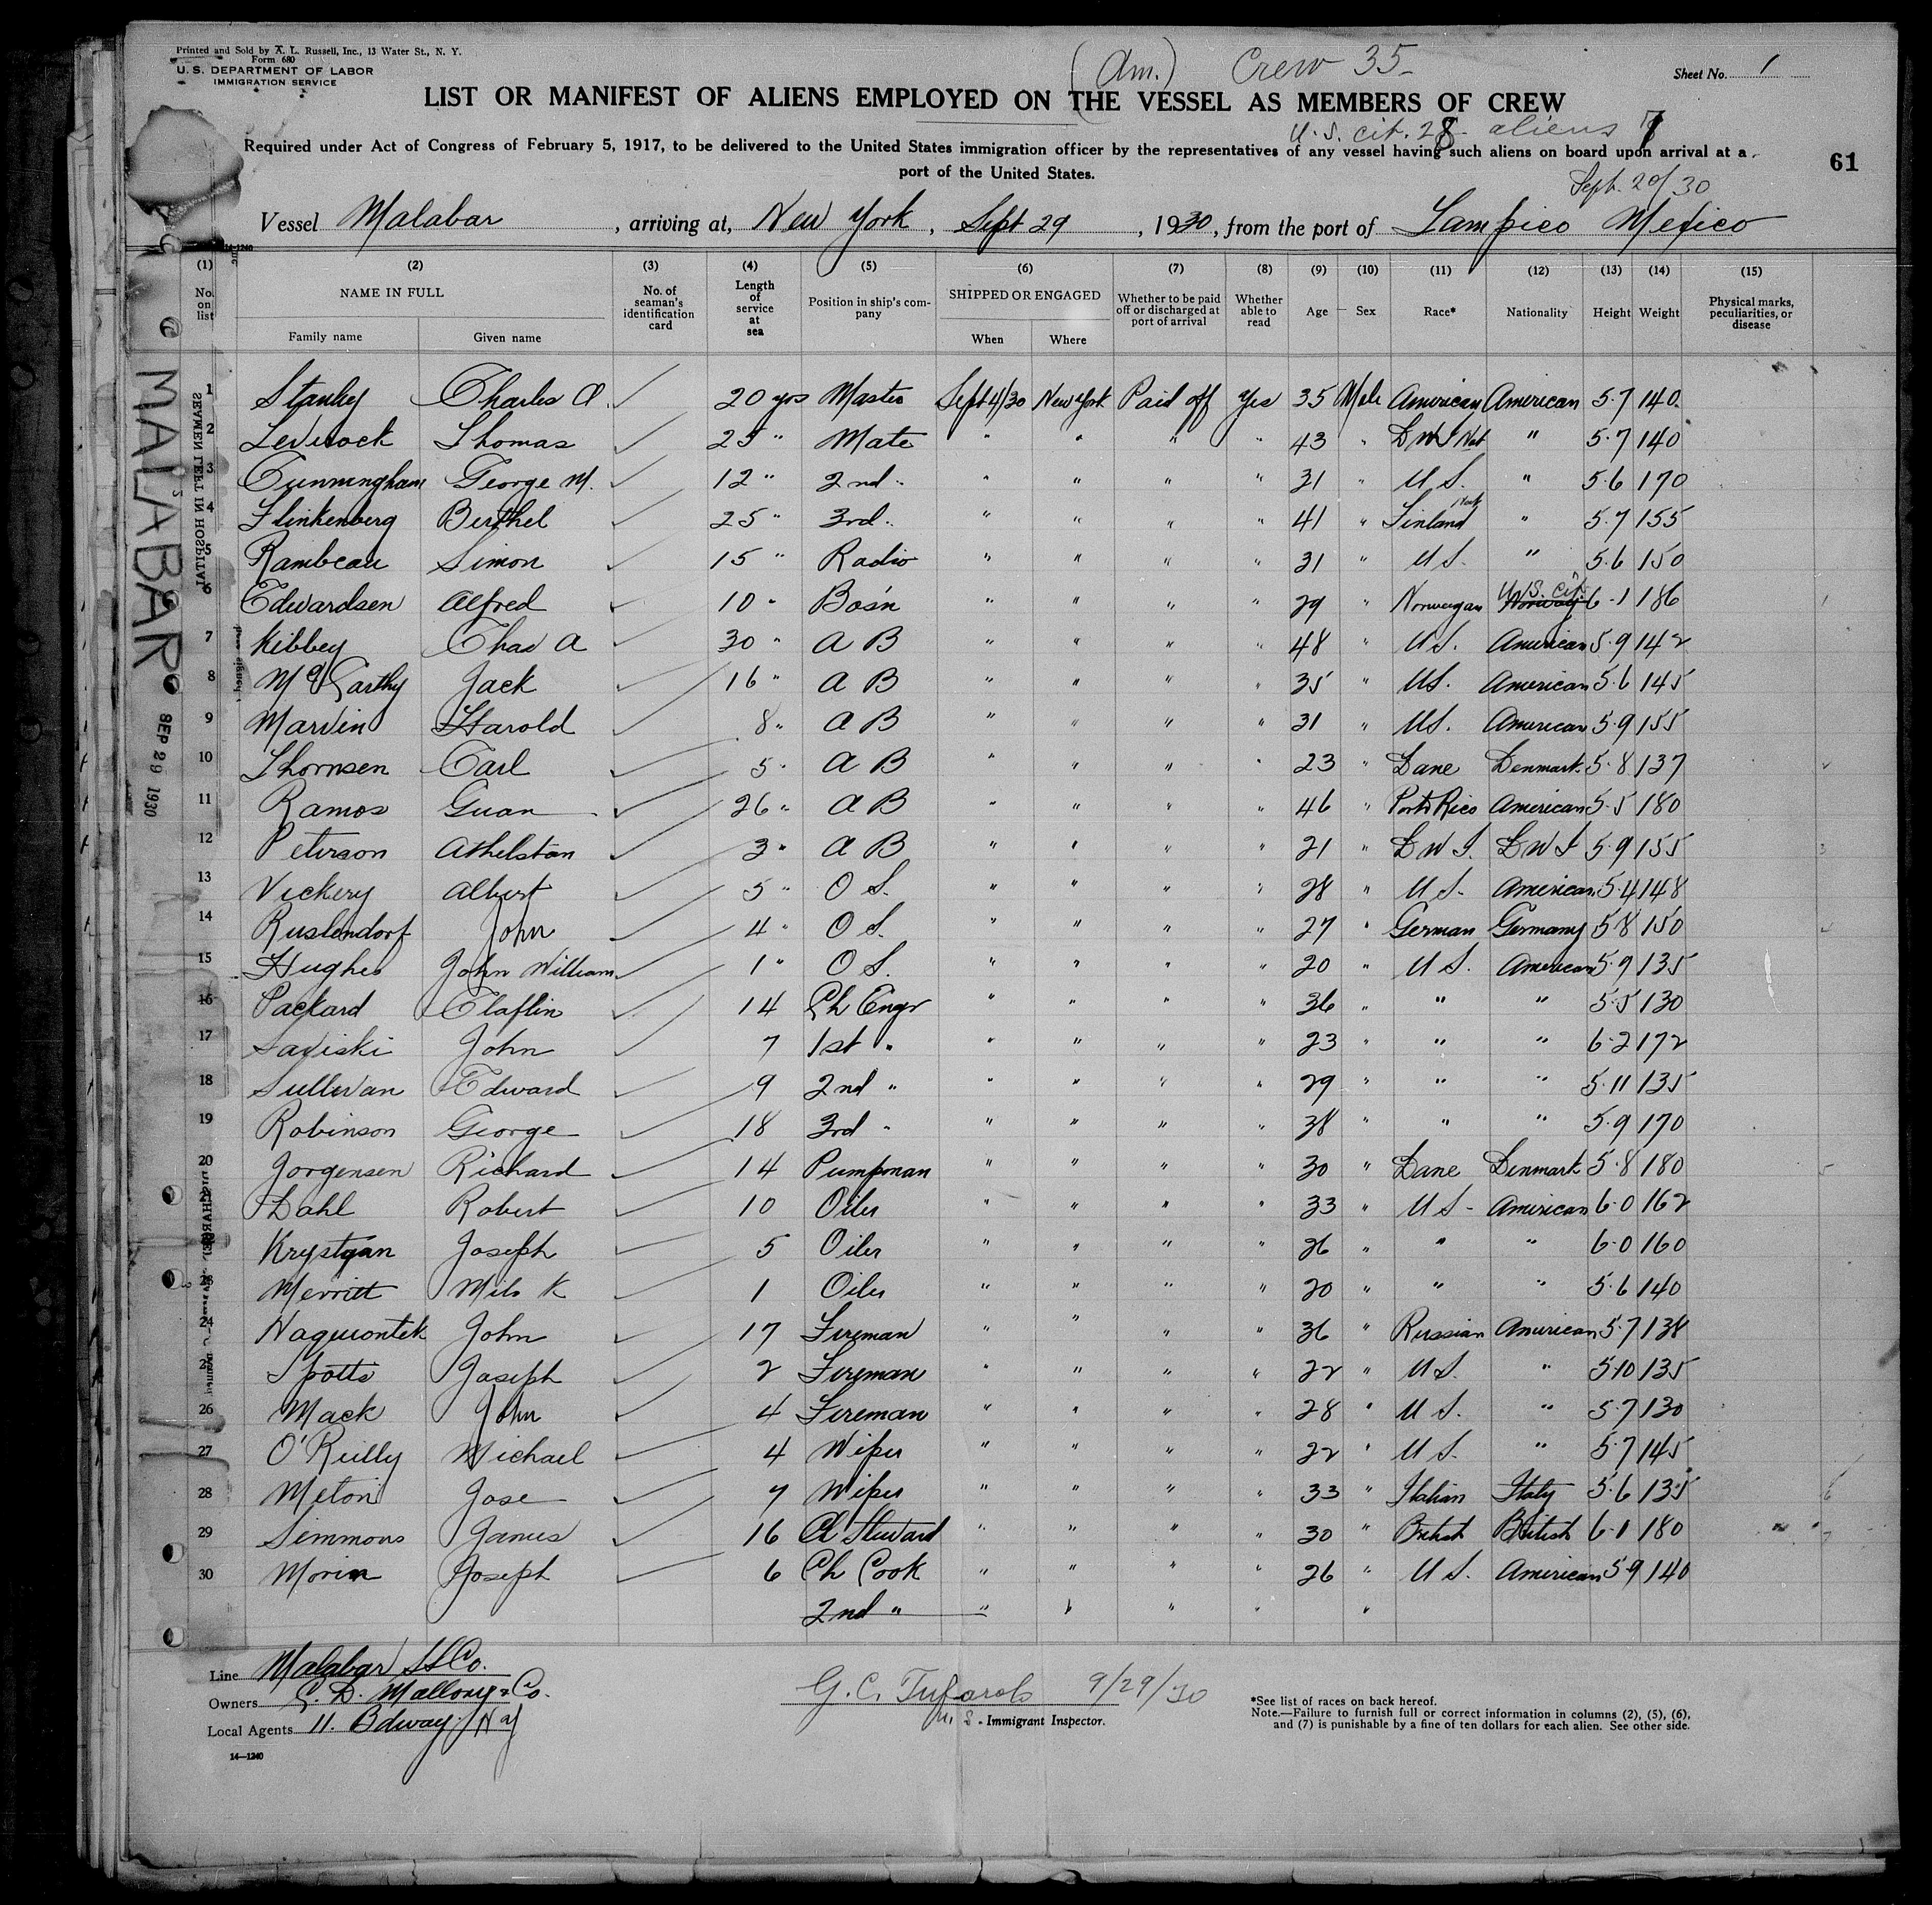 Printed and Sold by A. L. Russell, Inc., 13 Water St., N. Y.
Form 680
U. S. DEPARTMENT OF LABOR
IMMIGRATION SERVICE
(Am.) Crew 35
Sheet No. 1
LIST OR MANIFEST OF ALIENS EMPLOYED ON THE VESSEL AS MEMBERS OF CREW
U.S. cit. 28 aliens 7
Required under Act of Congress of February 5, 1917, to be delivered to the United States immigration officer by the representatives of any vessel having such aliens on board upon arrival at a
port of the United States.
61
Sept. 20/30
Vessel Malabar, arriving at, New York, Sept 29, 1930, from the port of Tampico Mexico
(1) (2) (3) (4) (5) (6) (7) (8) (9) (10) (11) (12) (13) (14) (15)
No. on list NAME IN FULL Family name Given name No. of seaman's identification card Length of service at sea Position in ship's company SHIPPED OR ENGAGED When Where Whether to be paid off or discharged at port of arrival Whether able to read Age Sex Race* Nationality Height Weight Physical marks, peculiarities, or disease
1 Stanley Charles A. 20 yrs Master Sept 4/30 New York Paid off Yes 35 Male American American 5.7 140
2 Leverock Thomas 25 " Mate " " " " 43 " D W I Nat " 5.7 140
3 Cunningham George M. 12 " 2nd " " " " " 31 " U S. " 5.6 170
4 Flinkenberg Berthel 25 " 3rd " " " " " 41 " Finland Nat " 5.7 155
5 Rambeau Simon 15 " Radio " " " " 31 " U S. " 5.6 150
6 Edwardsen Alfred 10 " Bos'n " " " " 29 " Norwegan Norway U.S. cit. 6.1 186
7 Kibbey Chas A 30 " A B " " " " 48 " U S. American 5.9 142
8 McCarthy Jack 16 " A B " " " " 35 " U S. American 5.6 145
9 Marvin Harold 8 " A B " " " " 31 " U S. American 5.9 155
10 Thomsen Carl 5 " A B " " " " 23 " Dane Denmark 5.8 137
11 Ramos Guan 26 " A B " " " " 46 " Porto Rico American 5.5 180
12 Peterson Athelstan 3 " A B " " " " 21 " D W I. D W I 5.9 155
13 Vickery Albert 5 " O S. " " " " 28 " U S. American 5.4 148
14 Ruslendorf John 4 " O S. " " " " 27 " German Germany 5.8 150
15 Hughes John William 1 " O S. " " " " 20 " U S. American 5.9 135
16 Packard Claflin 14 Ch Engr " " " " 36 " " " 5.5 130
17 Saviski John 7 1st " " " " " 23 " " " 6.2 172
18 Sullivan Edward 9 2nd " " " " " 29 " " " 5.11 135
19 Robinson George 18 3rd " " " " " 38 " " " 5.9 170
20 Jorgensen Richard 14 Pumpman " " " " 30 " Dane Denmark 5.8 180
21 Dahl Robert 10 Oiler " " " " 33 " U S American 6.0 162
22 Krystyan Joseph 5 Oiler " " " " 26 " " " 6.0 160
23 Merritt Milo K 1 Oiler " " " " 20 " " " 5.6 140
24 John 17 Fireman " " " " 36 " Russian American 5.7 138
25 Spotts Joseph 2 Fireman " " " " 22 " U S. " 5.10 135
26 Mack John 4 Fireman " " " " 28 " U S. " 5.7 130
27 O'Reilly Michael 4 Wiper " " " " 22 " U S. " 5.7 145
28 Meton Jose 7 Wiper " " " " 33 " Italian Italy 5.6 135
29 Simmons James 16 Ch Steward " " " " 30 " British British 6.1 180
30 Morin Joseph 6 Ch Cook " " " " 26 " U S. American 5.9 140
2nd " " " " " "
Line Malabar SS Co.
Owners C. D. Mallory & Co.
Local Agents 11. Bdway. N Y
14—1240
G. C. 9/29/30
U. S. Immigrant Inspector.
*See list of races on back hereof.
Note.—Failure to furnish full or correct information in columns (2), (5), (6),
and (7) is punishable by a fine of ten dollars for each alien. See other side.
MALABAR
SEP 29 1930
SEAMEN LEFT IN HOSPITAL